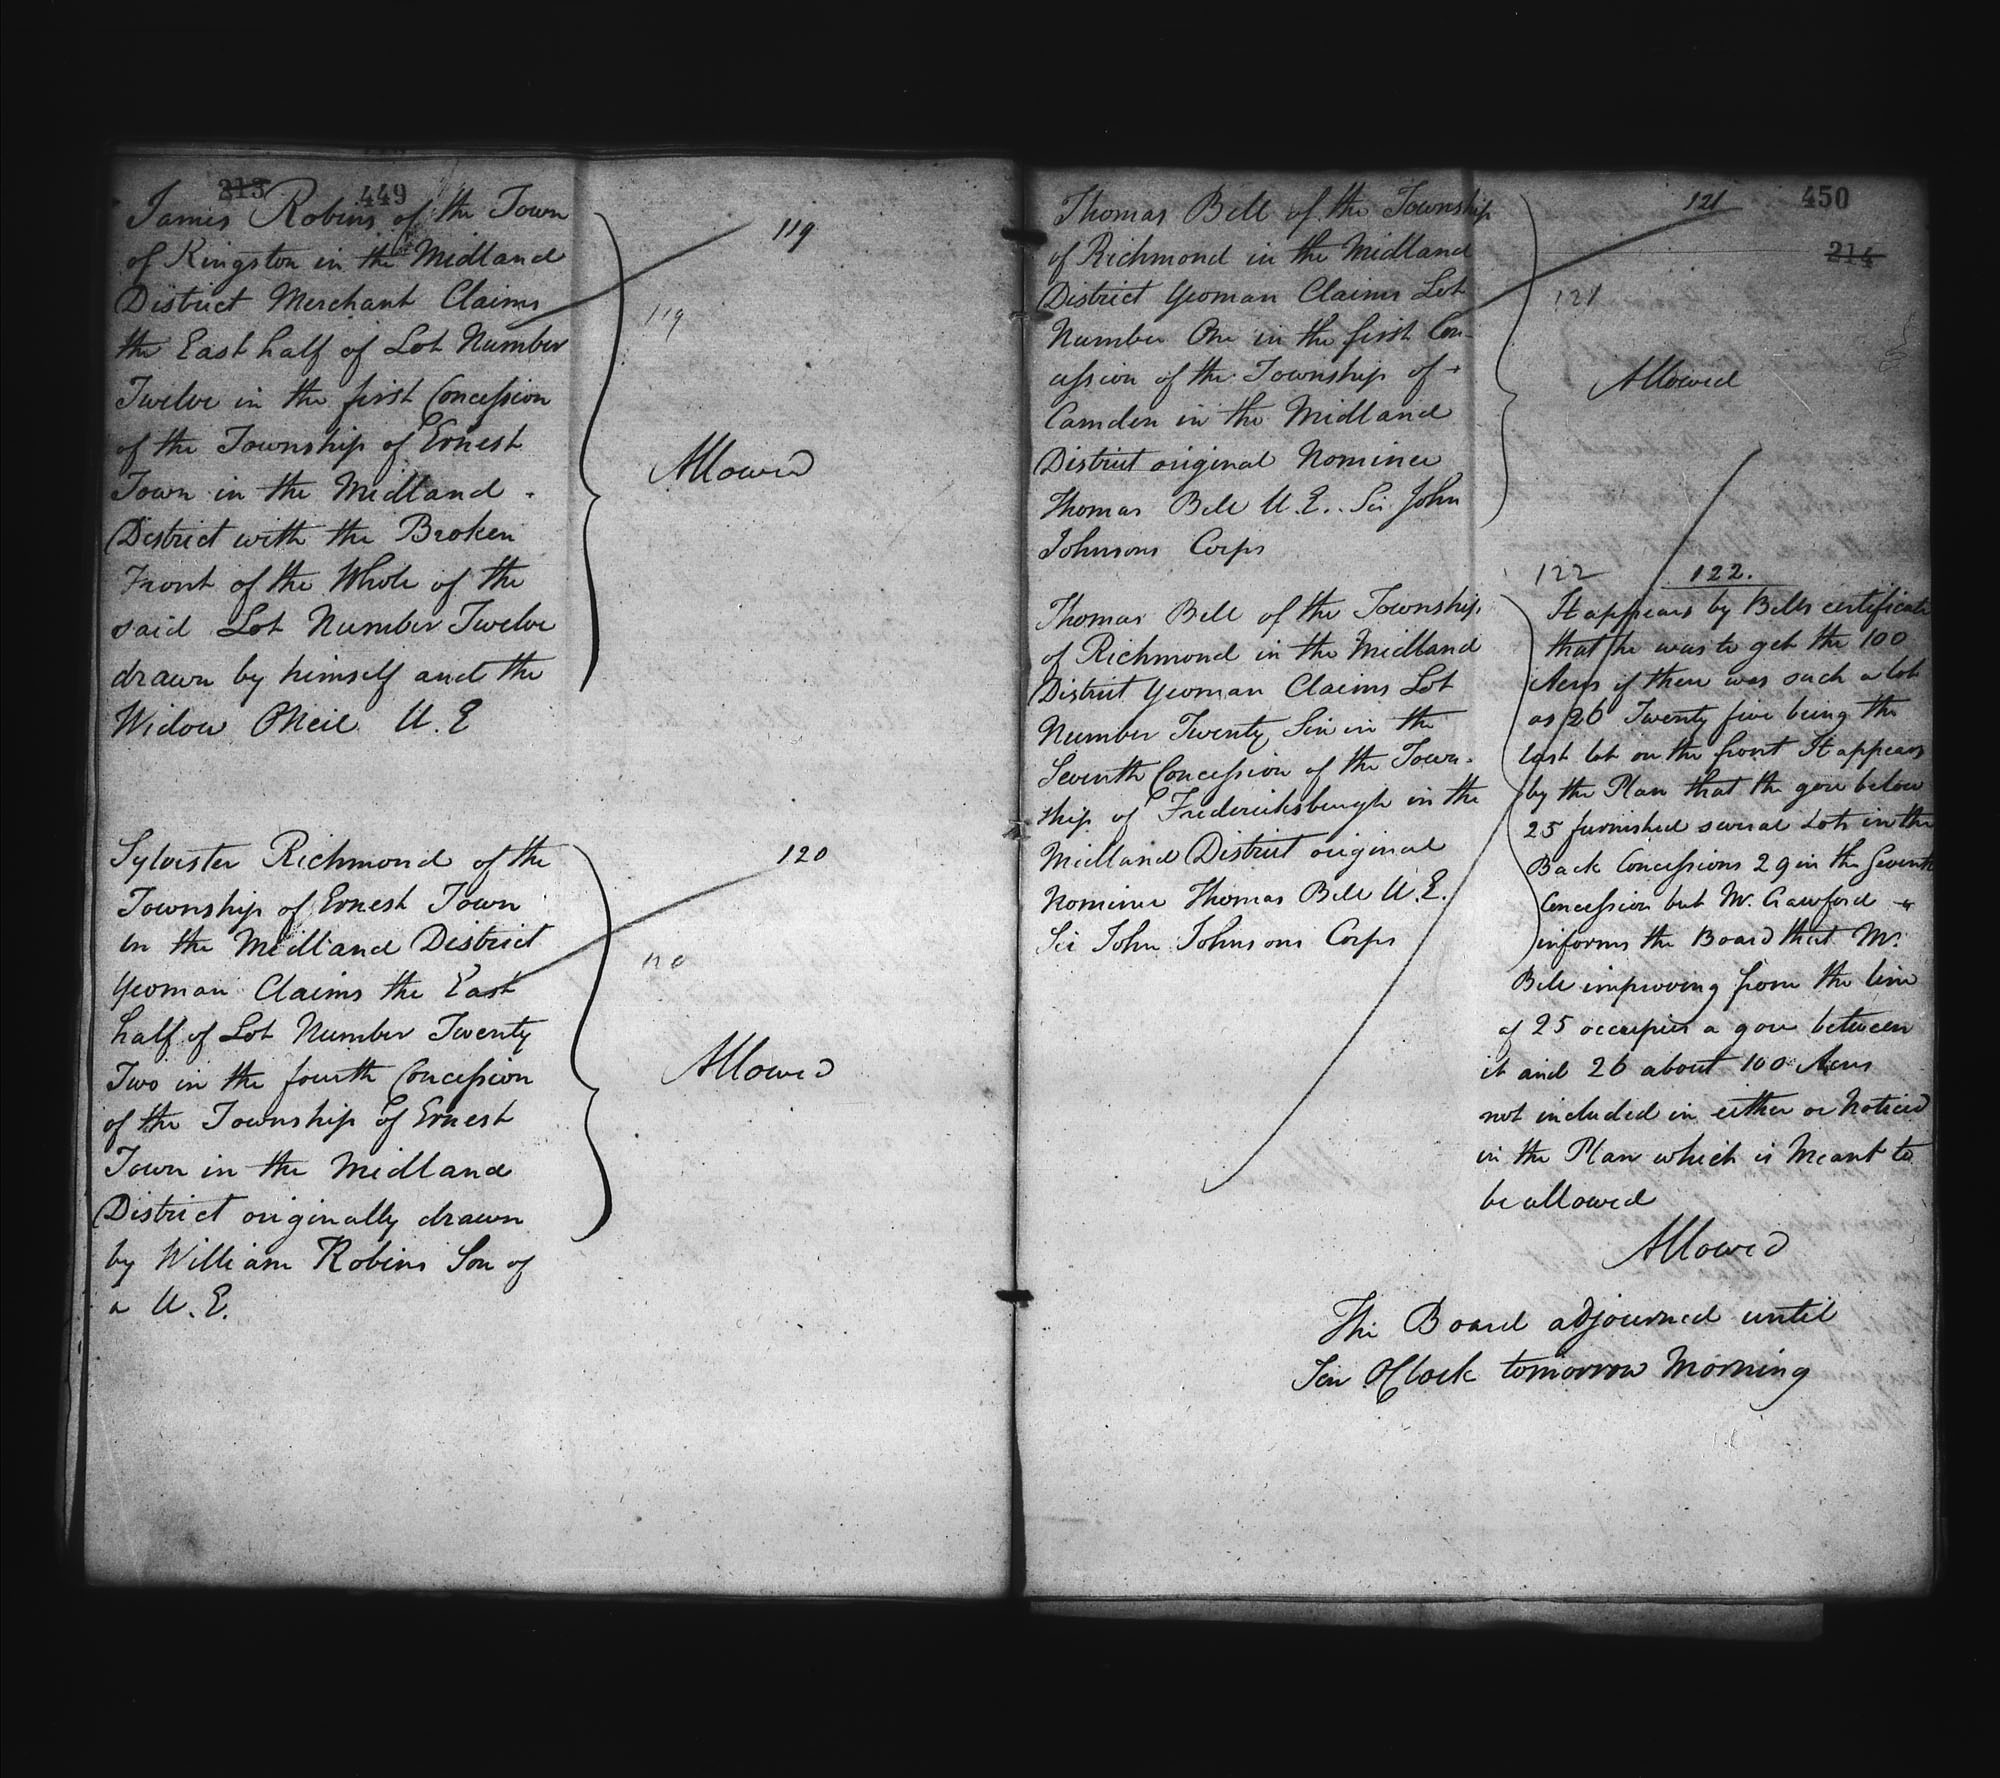 213 449
James Robins of the Town
of Kingston in the Midland
District Merchant Claims
the East half of Lot Number
Twelve in the first Concession
of the Township of Ernest
Town in the Midland
District with the Broken
Front of the Whole of the
said Lot Number Twelve
drawn by himself and the
Widow ONeil U.E
119
119
Allowed
Sylvester Richmond of the
Township of Ernest Town
in the Midland District
Yeoman Claims the East
half of Lot Number Twenty
Two in the fourth Concession
of the Township of Ernest
Town in the Midland
District originally drawn
by William Robins Son of
a U.E.
120
120
Allowed
450
214
Thomas Bell of the Township
of Richmond in the Midland
District Yeoman Claims Lot
Number One in the first Con-
cession of the Township of
Camden in the Midland
District original Nominee
Thomas Bell U.E. Sir John
Johnsons Corps
121
121
Allowed
Thomas Bell of the Township
of Richmond in the Midland
District Yeoman Claims Lot
Number Twenty Six in the
Seventh Concession of the Town-
ship of Fredericksburgh in the
Midland District original
Nominee Thomas Bell U.E.
Sir John Johnsons Corps
122 122.
It appears by Bells certificate
that he was to get the 100
Acres if there was such a lot
as 26 Twenty five being the
last lot on the front It appears
by the Plan that the gore below
25 furnished several Lots in the
Back Concessions 29 in the Seventh
Concession but Mr. Crawford
informs the Board that Mr.
Bell improving from the line
of 25 occupies a gore between
it and 26 about 100 Acres
not included in either or Noticed
in the Plan which is Meant to
be allowed
Allowed
The Board adjourned until
Ten OClock tomorrow Morning